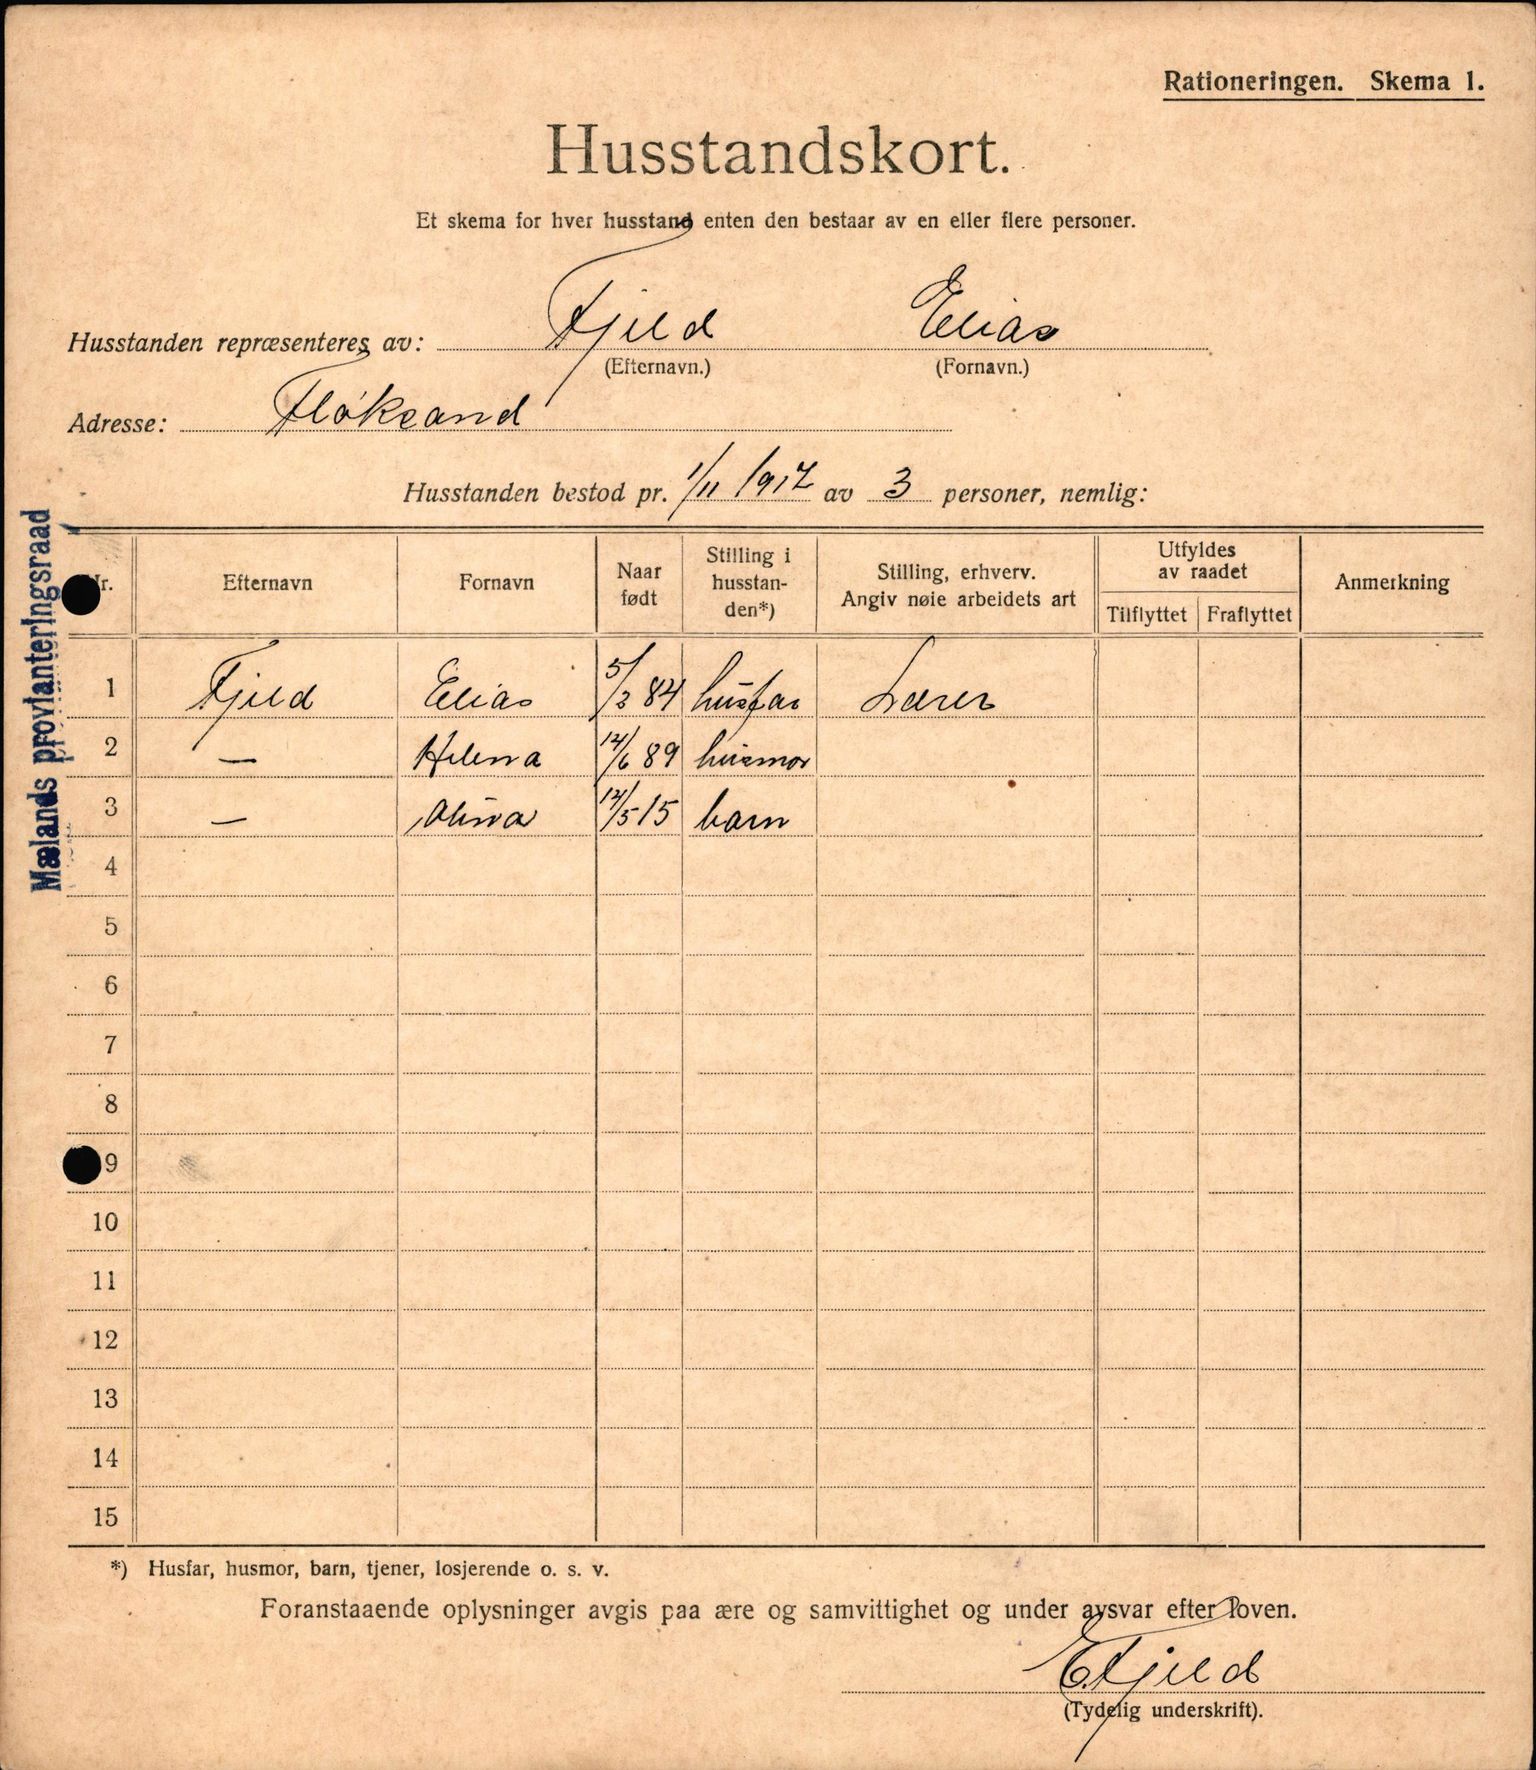 Rationeringen. Skema 1.
Husstandskort.
Et skema for hver husstand enten den bestaar av en eller flere personer.
Husstanden repræsenteres av: Fjeld Elias
(Efternavn.) (Fornavn.)
Adresse: Fløksand
Husstanden bestod pr. 1/11 1917 av 3 personer, nemlig:
Mælands provianteringsraad
Nr. Efternavn Fornavn Naar født Stilling i husstanden*) Stilling, erhverv. Angiv nøie arbeidets art Utfyldes av raadet Tilflyttet Fraflyttet Anmerkning
1 Fjeld Elias 5/3 84 husfar Lærer
2 — Helena 14/6 89 husmor
3 — 14/5 15 barn
4
5
6
7
8
9
10
11
12
13
14
15
*) Husfar, husmor, barn, tjener, losjerende o. s. v.
Foranstaaende oplysninger avgis paa ære og samvittighet og under avsvar efter loven.
E. Fjeld
(Tydelig underskrift).